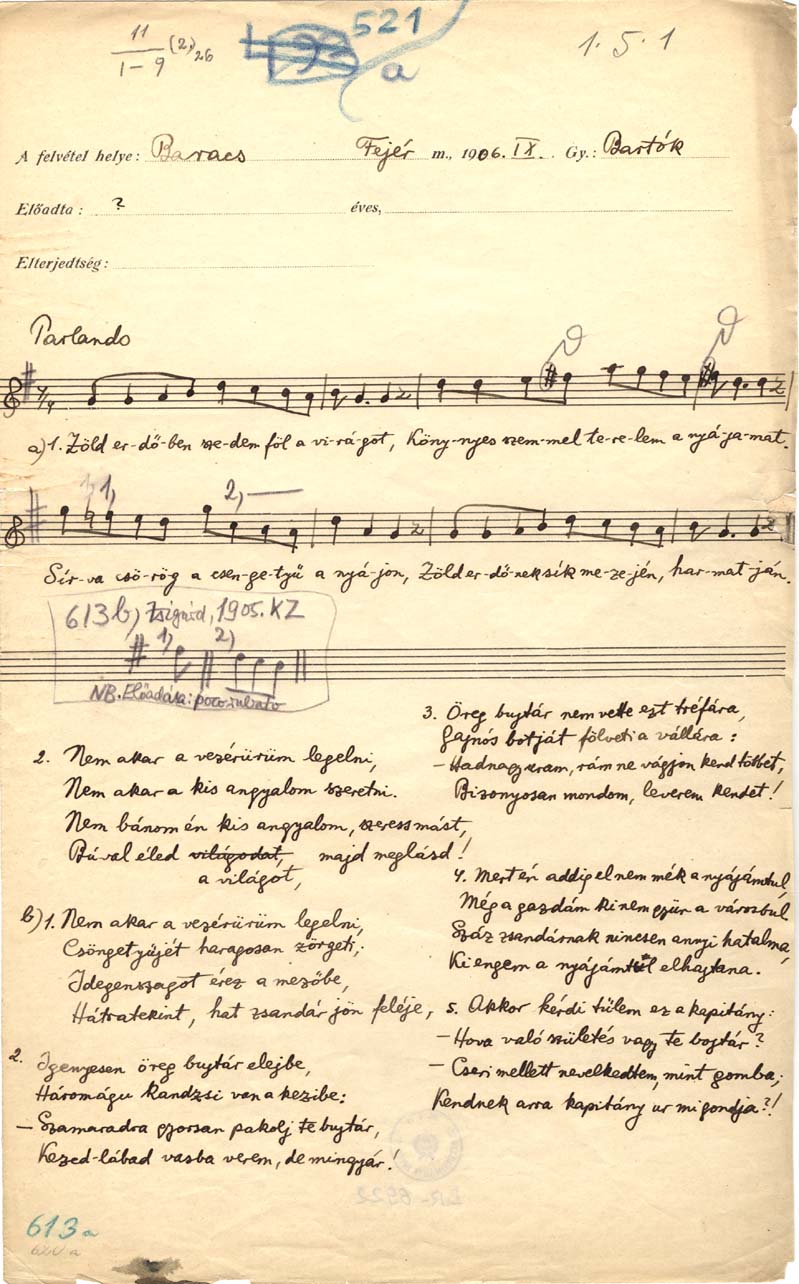 11
1-9 (2.) 26
521
a
1. 5. 1
A felvétel helye: Baracs Fejér m., 1906. IX. Gy.: Bartók
Előadta: ? éves,
Elterjedtség:
Parlando
a) 1. Zöld er-dő-ben sze-dem föl a vi-rá-got, Köny-nyes szem-mel te-re-lem a nyá-ja-mat.
1, 2,
Sír-va csö-rög a csen-ge-tyű a nyá-jon, Zöld er-dő-nek sík me-ze-jén, har-mat-ján.
613b) Zsigárd, 1905. KZ
1) 2)
NB. Előadása: poco rubato
2. Nem akar a vezérürüm legelni,
Nem akar a kis angyalom szeretni.
Nem bánom én kis angyalom, szeress mást,
Búval éled világodat, majd meglásd!
a világot,
b) 1. Nem akar a vezérürüm legelni,
Csöngetyűjét haragosan zörgeti;
Idegenszagot érez a mezőbe,
Hátratekint, hat zsandár jön feléje,
2. Igenyesen öreg bujtár elejbe,
Háromágu kandzsi van a kezibe:
— Szamaradra gyorsan pakolj te bujtár,
Kezed-lábad vasba verem, de mingyár!
3. Öreg bujtár nem vette ezt tréfára,
Gajnós botját fölveti a vállára:
— Hadnagy uram, rám ne vágjon kend többet,
Bizonyosan mondom, leverem kendet!
4. Mert én addig el nem mék a nyájámtul,
Még a gazdám ki nem gyün a városbul
Száz zsandárnak nincsen annyi hatalma,
Ki engem a nyájámtúl elhajtana.
5. Akkor kérdi tülem ez a kapitány:
— Hova való születés vagy te bojtár?
— Cseri mellett nevelkedtem, mint gomba;
Kendnek arra kapitány ur mi gondja?!
613a